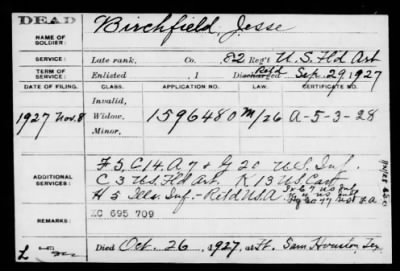 DEAD
NAME OF SOLDIER: Birchfield, Jesse
SERVICE: Late rank, Co. 82 Reg't U.S. Fld Art
TERM OF SERVICE: Enlisted , 1 Discharged Retd Sep. 29, 1927
DATE OF FILING. CLASS. APPLICATION NO. LAW. CERTIFICATE NO.
Invalid,
1927 Nov. 8 Widow, 1596480 M/26 A-5-3-28
Minor,
ADDITIONAL SERVICES: F 5, C 14, A 7 & G 20 U.S. Inf.
C 3 U.S. Fld Art. K 13 U.S. Cav
H 5 Ills. Inf. - Retd U.S.A.
REMARKS: XC 695 709
Died Oct. 26, 1927, at Ft. Sam Houston, Tex